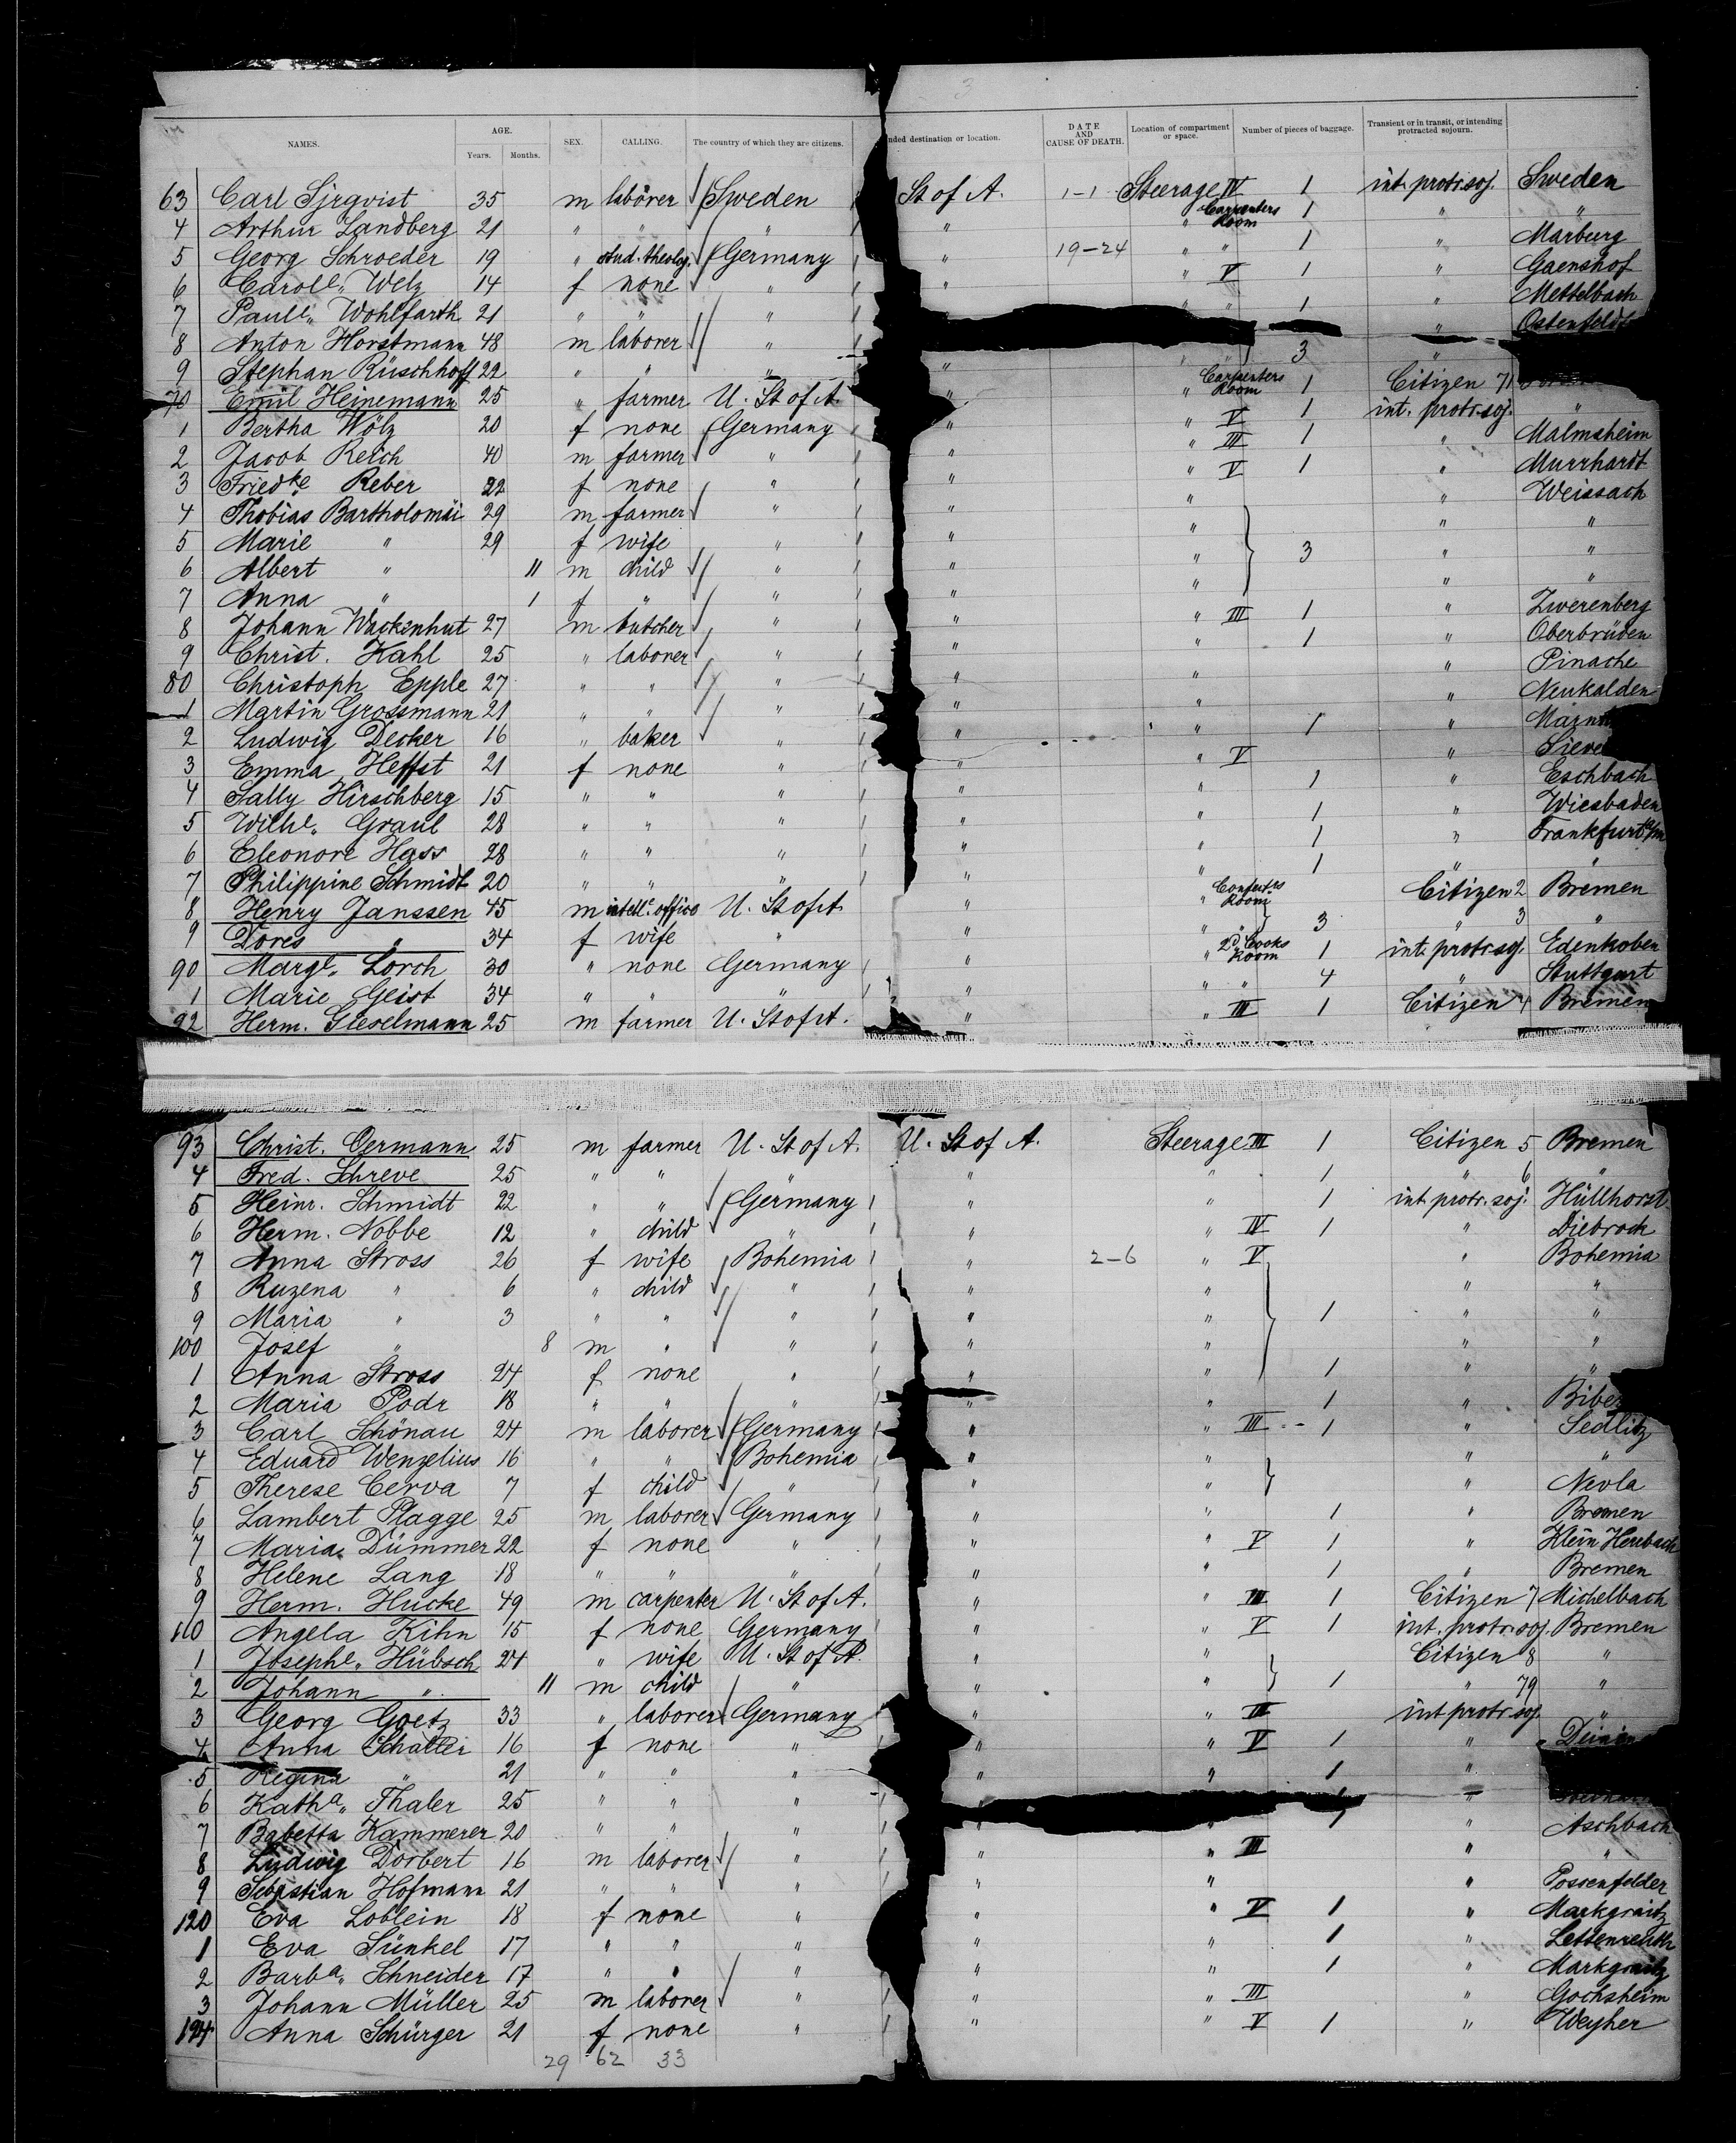 3
NAMES. AGE. Years. Months. SEX. CALLING. The country of which they are citizens. nded destination or location. DATE AND CAUSE OF DEATH. Location of compartment or space. Number of pieces of baggage. Transient or in transit, or intending protracted sojourn.
63 Carl Sjrqvist 35 m laborer Sweden St of A. 1-1 Steerage IV 1 int. protr. soj. Sweden
4 Arthur Landberg 21 " " " " " Carpenters Room 1 " "
5 Georg Schroeder 19 " stud. theolog. Germany " 19-24 " " 1 " Marburg
6 Carole. Welz 14 f none " " " V 1 " Gaenshof
7 Paule. Wohlfarth 21 " " " " " 1 " Mettelbach
8 Anton Horstmann 48 m laborer " " Ostenfeldt
9 Stephan Rüschhoff 22 " " " " " " 3 "
70 Emil Heinemann 25 " farmer U. St of A. " " Carpenters Room 1 Citizen 71
1 Bertha Wölz 20 f none Germany " " V 1 int. protr. soj. "
2 Jacob Reich 40 m farmer " " " III 1 " Malmsheim
3 Friedke Reber 22 f none " " " V 1 " Murrhardt
4 Thobias Bartholomäi 29 m farmer " " " " Weissach
5 Marie " 29 f wife " " " " "
6 Albert " 11 m child " " " 3 " "
7 Anna " 1 f " " " " " "
8 Johann Wackenhut 27 m butcher " " " III 1 " Zwerenberg
9 Christ. Kahl 25 " laborer " " " 1 " Oberbrüden
80 Christoph Epple 27 " " " " " " Pinache
1 Martin Grossmann 21 " " " " " Neukalden
2 Ludwig Decker 16 " baker " " " 1 "
3 Emma Heffst 21 f none " " " V "
4 Sally Hirschberg 15 " " " " " 1 " Eschbach
5 Wilhe. Graul 28 " " " " " 1 " Wiesbaden
6 Eleonore Hass 28 " " " " " 1 " Frankfurt a/m
7 Philippine Schmidt 20 " " " " " 1 " "
8 Henry Janssen 45 m intell. office U. St of A. " " Room Citizen 2 Bremen
9 Dores " 34 f wife " " " " 3 " 3 "
90 Marge. Lorch 30 " none Germany " " 2d Cooks Room 1 int. protr. soj. Edenkoben
1 Marie Geist 34 " " " " " " 4 " Stuttgart
92 Herm. Gieselmann 25 m farmer U. St of A. " " III 1 Citizen 4 Bremen
93 Christ. Oermann 25 m farmer U. St of A. U. St of A. Steerage III 1 Citizen 5 Bremen
4 Fred. Schreve 25 " " " " 1 " 6 "
5 Heinr. Schmidt 22 " " Germany " " 1 int. protr. soj. Hüllhorst
6 Herm. Nobbe 12 " child " " " IV 1 " Diebrock
7 Anna Stross 26 f wife Bohemia " 2-6 " V " Bohemia
8 Ruzena " 6 " child " " " " "
9 Maria " 3 " " " " " 1 " "
100 Josef " 8 m " " " " " "
1 Anna Stross 24 f none " " " 1 " "
2 Maria Podr 18 " " " " " 1 "
3 Carl Schönau 24 m laborer Germany " " III 1 " Sedlitz
4 Eduard Wenzelius 16 " " Bohemia " " " "
5 Therese Cerva 7 f child " " " " Nevla
6 Lambert Plagge 25 m laborer Germany " " 1 " Bremen
7 Maria Dümmer 22 f none " " " V 1 " Klein Heubach
8 Helene Lang 18 " " " " " 1 " Bremen
9 Herm. Hucke 49 m carpenter U. St of A. " " III 1 Citizen 7 Michelbach
110 Angela Kihn 15 f none Germany " " V 1 int. protr. soj. Bremen
1 Josephe. Hübsch 24 " wife U. St of A. " " Citizen 8 "
2 Johann " 11 m child " " " 1 " 79 "
3 Georg Goetz 33 " laborer Germany " " III int protr. soj. "
4 Anna Schaller 16 f none " " " V 1 "
5 Regina " 21 " " " " " 1 "
6 Katha. Thaler 25 " " " "
7 Babetta Kammerer 20 " " " " " 1 " Aschbach
8 Ludwig Dorbert 16 m laborer " " " III " "
9 Sebastian Hofmann 21 " " " " " " Possenfelder
120 Eva Loblein 18 f none " " " V 1 " Markgraitz
1 Eva Sünkel 17 " " " " " 1 " Lettenreuth
2 Barba. Schneider 17 " " " " " 1 " Markgraitz
3 Johann Müller 25 m laborer " " " III " Gochsheim
124 Anna Schürger 21 f none " " " V 1 " Weyher
29 62 33